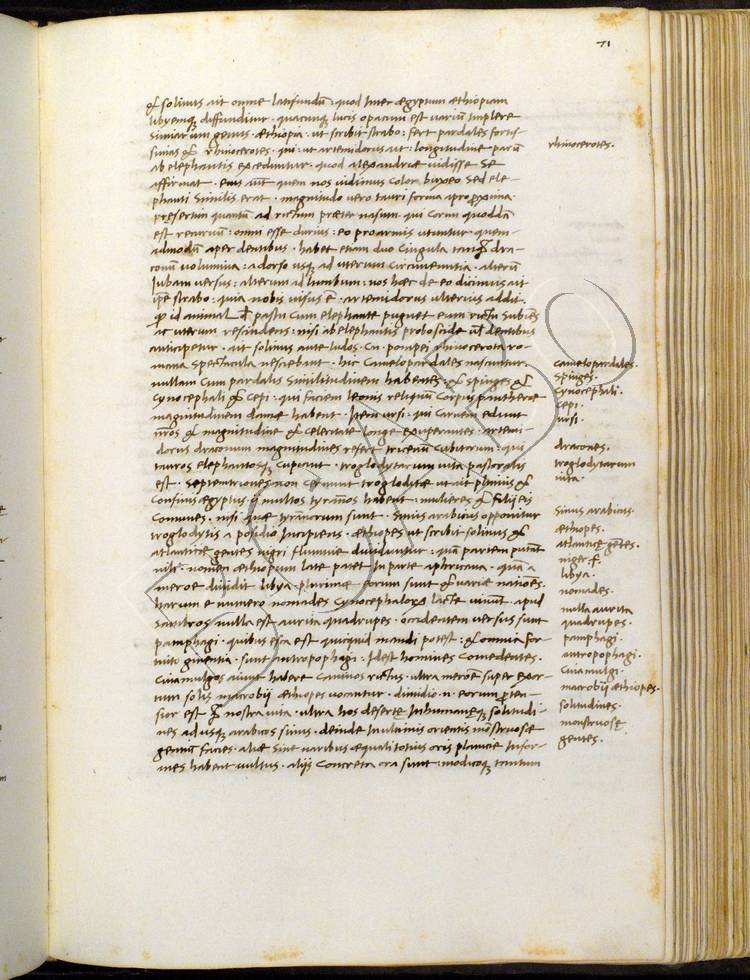 71
& solinus ait omne latifundũ: quod Inter ægyptum æthiopiam
libyemq; diffunditur. quacumq; lucis opacum est varium Implere
Simiarum genus. æthiopia. ut scribit strabo: fert pardales fortis-
simas & rhinocerotes. qui: ut artemidorus ait: longitudine parũ
ab elephantis exceduntur. quod alexandriæ vidisse Se
affirmat. Eius autẽ quem nos vidimus color buxeo Sed ele-
phanti Similis erat. magnitudo vero tauri forma apro proxima.
presertim quantũ ad rictum præter nasum. qui Cornu quoddã
est recuruũ: omni osse durius: eo pro armis utuntur. quem-
admodũ aper dentibus. habet etiam duo Cingula tanq̃ dra-
conũ volumina: a dorso usq; ad uterum circumeuntia. alterũ
Iubam versus: alterum ad lumbum: nos hæc de eo dicimus ait
ip̃e strabo: quia nobis visus ẽ. artemidorus ulterius addit.
q̃ id animal de pastu Cum elephante pugnet eum rictu Subiẽs
ac uterum rescindens: nisi ab elephantis proboscide uel dentibus
anticipetur. ait solinus ante ludos. Cn. pompei rhinocerota ro-
mana Spectacula nesciebant. hic Camelopardales nascuntur.
nullam Cum pardalis Similitudinem habentes. & spinges &
Cynocephali & cepi. qui faciem leonis reliquũ Corpus pantheræ
magnitudinem damæ habent. Item ursi. qui Carnem edunt
nr̃os & magnitudine & celeritate longe exuperantes. artemi-
dorus draconum magnitudines refert tricenũ Cubitorum: qui
tauros elephantosq; Capiunt. troglodytarum uita pastoralis
est. Septentriones non Cernunt troglodite ut ait plinius &
Confinis ægyptus. ii multos tyrãnos habent. mulieres & filij eis
Comunes. nisi quæ tyrãnorum sunt. Sinui arabicus opponitur
troglodytis a posidio Incipiens. æthiopes ut scribit solinus &
atlanticæ gentes nigri flumine diuiduntur: quã partem putãt
nili. nomen æthiopum late patet In parte aphricana. quã a
meroe diuidit libya. plurimæ eorum sunt & variæ natiões.
harum e numero nomades Cynocephalorũ lacte viuũt. apud
Sirbotas nulla est aurita quadrupes. occidentem versus sunt
pamphagi. quibus esca est quicquid mandi potest: & omnia for-
tuito gigentia. sunt antropophagi: Idest homines Comedentes.
Cinamulgos aiunt habere Caninos rictus. ultra meroẽ super exor-
tum solis macrobij æthiopes vocantur. dimidio .n. eorum prten-
sior est q̃ nostra vita. ultra hos desertę Inhumaneq; solitudi-
nes ad usq; arabicos sinus. deinde In ultimis orientis mõstruosæ
gentiũ facies. aliæ sine naribus æquali totius oris planicie Infor-
mes habent vultus. alijs Concreta ora sunt: modicoq; tantum
rhinocerotes.
camelopardales.
Spinges.
Cynocephali.
Cepi.
ursi.
dracones.
troglodytarum
uita.
Sinus arabicus.
æthiopes.
atlanticę gẽtes.
niger .f.
libya.
nomades.
nulla aurita
quadrupes.
pamphagi.
antropophagi.
Cinamulgi.
macrobij æthiopes.
solitudines.
monstruosę
gentes.